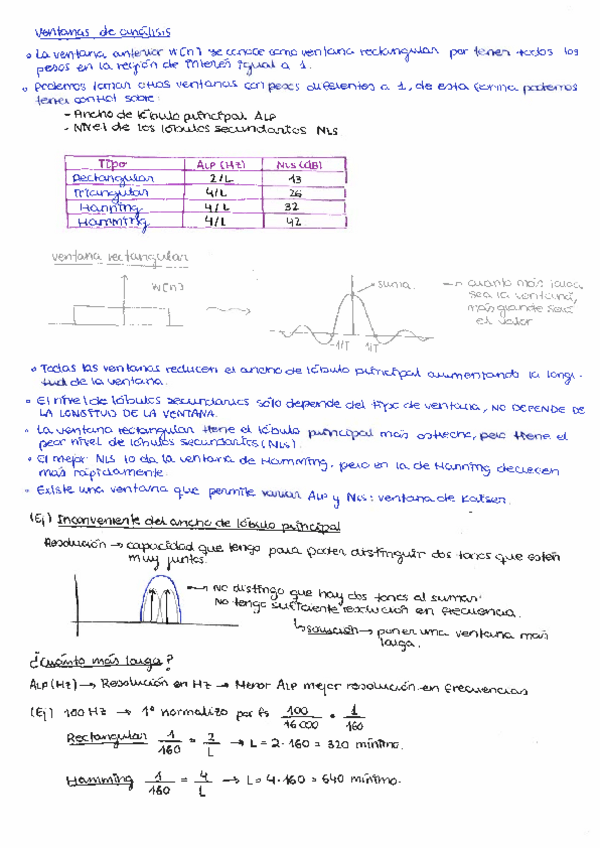 Ventanas de análisis
• La ventana anterior w[n] se conoce como ventana rectangular por tener todos los
pesos en la región de interés igual a 1.
• Podemos tomar otras ventanas con pesos diferentes a 1, de esta forma podemos
tener control sobre:
- Ancho de lóbulo principal ALP
- Nivel de los lóbulos secundarios NLS
Tipo ALP (Hz) NLS (dB)
Rectangular 2/L 13
Triangular 4/L 26
Hanning 4/L 32
Hamming 4/L 42
ventana rectangular
w[n]
suma
→ cuanto más larga
sea la ventana,
más grande será
el valor
-1/T 1/T
• Todas las ventanas reducen el ancho de lóbulo principal aumentando la longi-
tud de la ventana.
• El nivel de lóbulos secundarios sólo depende del tipo de ventana, NO DEPENDE DE
LA LONGITUD DE LA VENTANA.
• La ventana rectangular tiene el lóbulo principal más estrecho, pero tiene el
peor nivel de lóbulos secundarios (NLS).
• El mejor NLS lo da la ventana de Hamming, pero en la de Hanning decrecen
más rápidamente.
• Existe una ventana que permite variar ALP y NLS: ventana de Kaiser.
(Ej) Inconveniente del ancho de lóbulo principal
Resolución → capacidad que tengo para poder distinguir dos tonos que estén
muy juntos.
→ No distingo que hay dos tonos al sumar.
No tengo suficiente resolución en frecuencia.
↳ solución → poner una ventana más
larga.
¿Cuánto más larga?
ALP (Hz) → Resolución en Hz → Menor ALP mejor resolución en frecuencias
(Ej) 100 Hz → 1º normalizo por fs 100/16000 = 1/160
Rectangular 1/160 = 2/L → L = 2·160 = 320 mínimo.
Hamming 1/160 = 4/L → L = 4·160 = 640 mínimo.